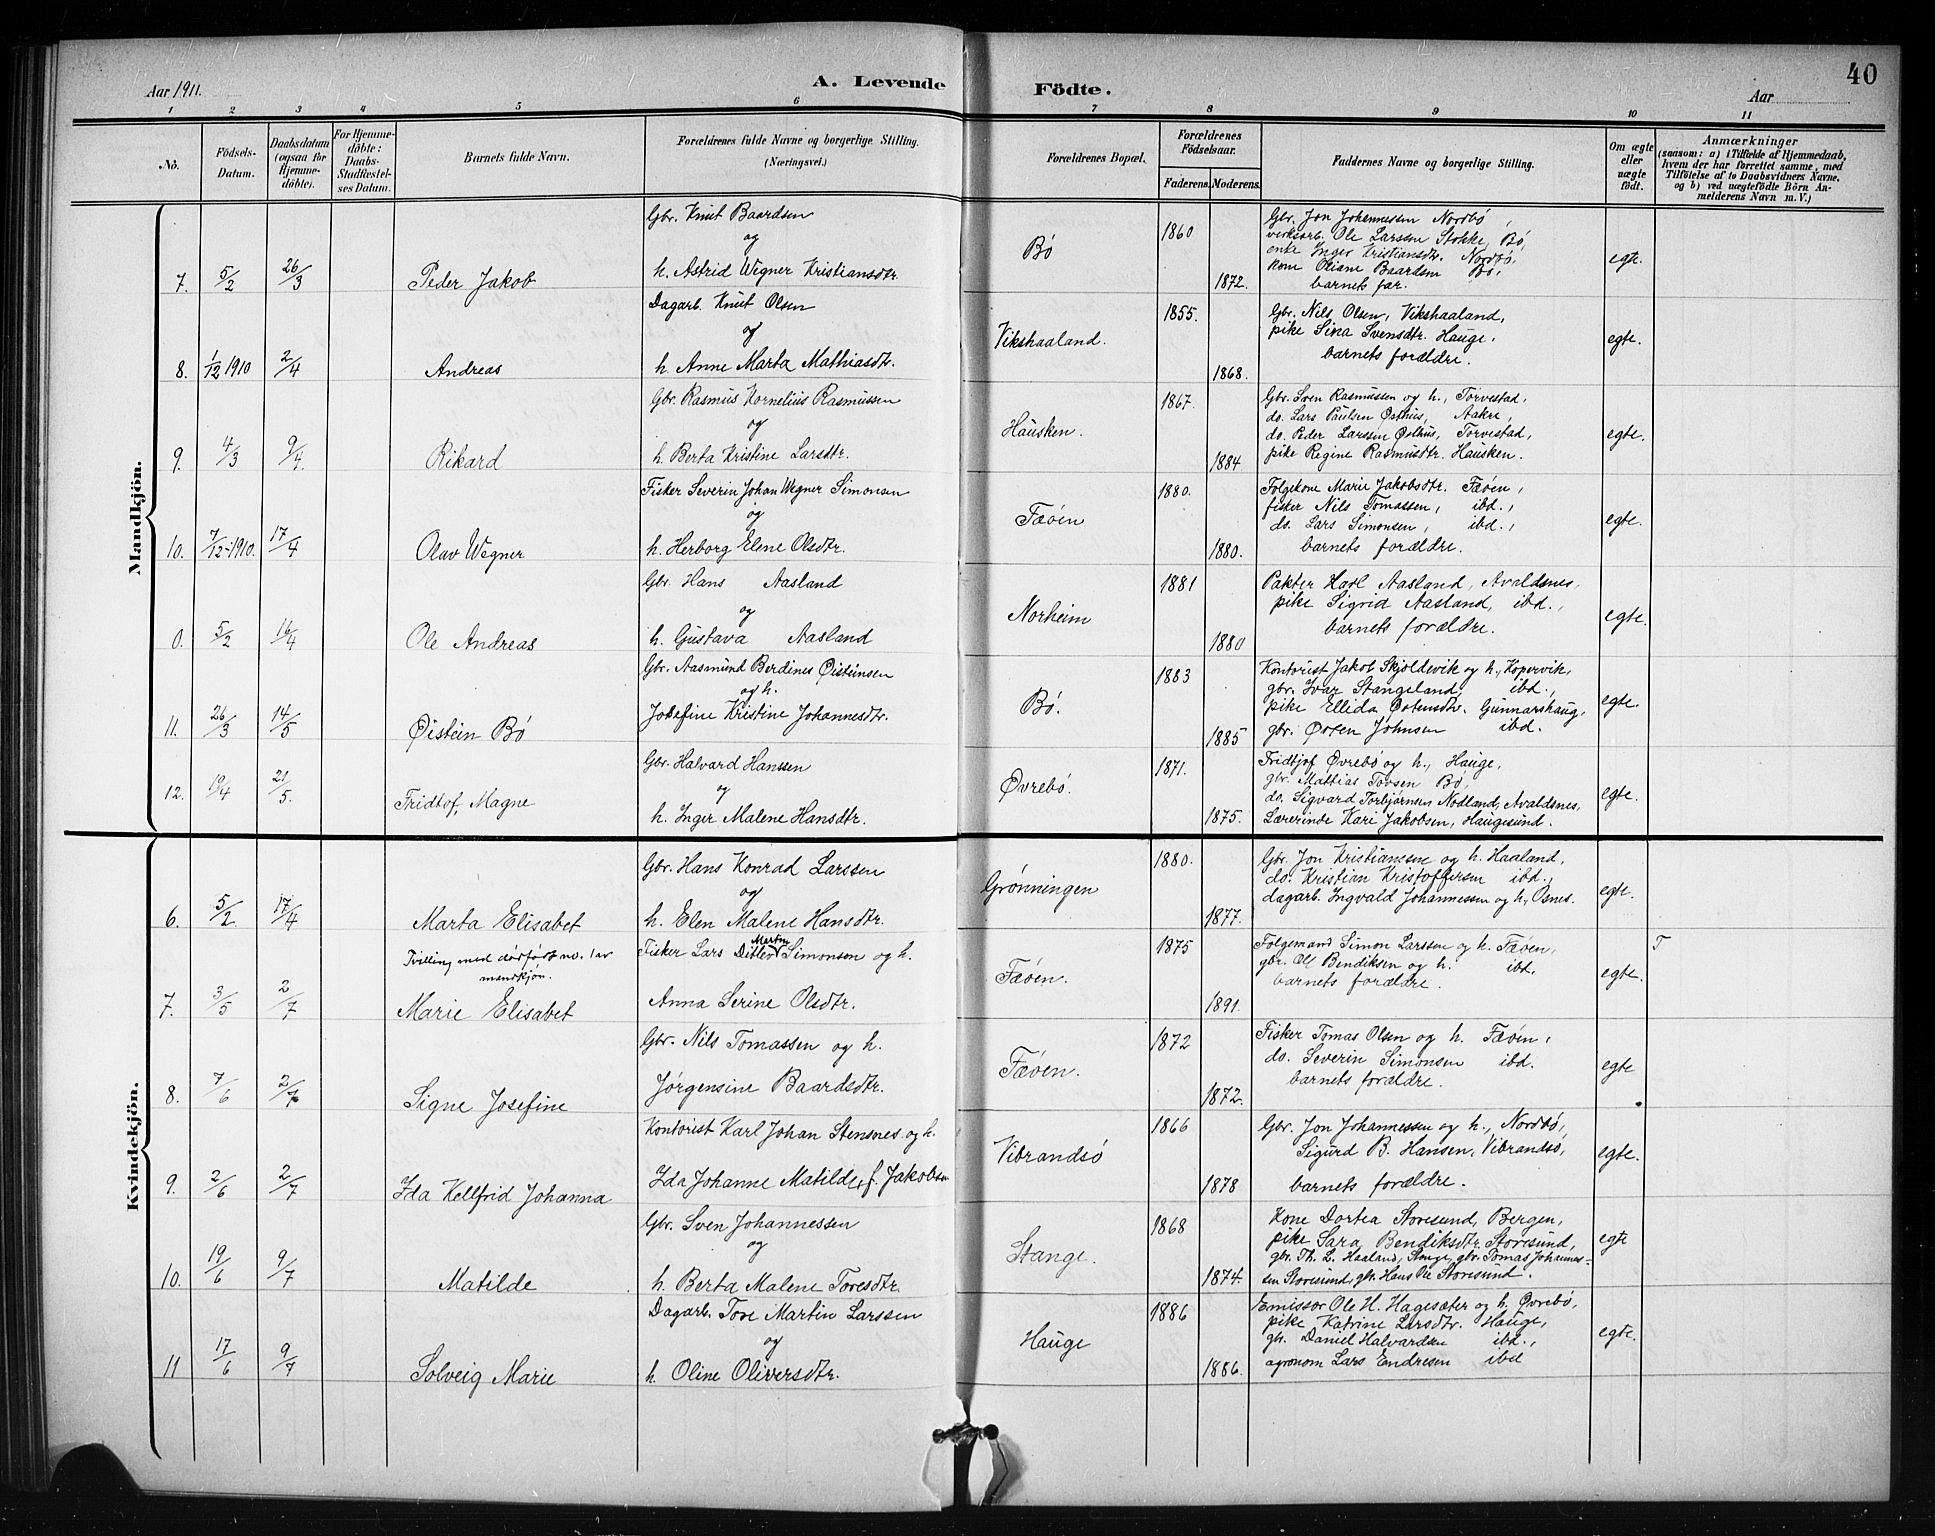 Aar 1911.
A. Levende
Födte.
Aar
40
1 2 3 4 5 6 7 8 9 10 11
No.
Födsels-Datum.
Daabsdatum (ogsaa for Hjemme-döbte).
For Hjemme-döbte: Daabs-Stadfæstel-ses Datum.
Barnets fulde Navn.
Forældrenes fulde Navne og borgerlige Stilling. (Næringsvei.)
Forældrenes Bopæl.
Forældrenes Födselsaar.
Faderens. Moderens.
Faddernes Navne og borgerlige Stilling.
Om ægte eller uægte födt.
Anmærkninger
(saasom: a) i Tilfælde af Hjemmedaab, hvem der har forrettet samme, med Tilföielse af to Daabsvidners Navne, og b) ved uægtefödte Börn An-melderens Navn m. V.)
Mandkjön.
7. 5/2 26/3 Peder Jakob
Gbr. Knut Baardsen
og
h. Astrid Wegner Kristiansdtr.
Bø
1860
1872.
Gbr. Jon Johannessen Nordbø,
verksarb. Ole Larssen Stokke, Bø,
enke Inger Kristiansdtr. Nordbø,
kone Oliane Baardsen Bø,
barnets far.
egte.
8. 1/12 1910 2/4 Andreas
Dagarb. Knut Olsen
og
h. Anne Marta Mathiasdtr.
Vikshaaland.
1855.
1868.
Gbr. Nils Olsen, Vikshaaland,
pike Sina Svensdtr. Hauge,
barnets forældre.
egte.
9. 4/3 9/4. Rikard
Gbr. Rasmus Kornelius Rasmussen
og
h. Berta Kristine Larsdtr.
Hausken.
1867.
1884
Gbr. Sven Rasmussen og h., Torvestad,
do. Lars Paulsen Østhus, Aakre,
do. Peder Larssen Østhus, Torvestad,
pike Regine Rasmusdtr. Hausken.
egte.
10. 7/12-1910. 17/4 Olav Wegner
Fisker Severin Johan Wegner Simonsen
og
h. Herborg Elene Olsdtr.
Fæøen
1880.
1880.
Folgekone Marie Jakobsdtr. Fæøen,
fisker Nils Tomassen, ibd.,
do. Lars Simonsen, ibd.,
barnets forældre.
egte.
0. 5/2 16/4 Ole Andreas
Gbr. Hans Aasland
og
h. Gustava Aasland
Norheim
1881
1880
Pakter Karl Aasland, Avaldsnes,
pike Sigrid Aasland, ibd.,
barnets forældre.
egte.
11. 26/3 14/5 Øistein Bø
Gbr. Aasmund Berdines Øisteinsen
og h.
Josefine Kristine Johannesdtr.
Bø.
1883
1885
Kontorist Jakob Skjoldevik og h., Kopervik,
gbr. Ivar Stangeland, ibd.,
pike Ellida Ostensdtr. Gunnarshaug,
gbr. Østen Johnsen ibd.
egte.
12. 19/4 21/5. Fridtof, Magne
Gbr. Halvard Hanssen
og
h. Inger Malene Hansdtr.
Øvrebø.
1871.
1875.
Fridtjof Øvrebø og h., Hauge,
gbr. Mattias Tovsen Bø,
do. Sigvard Torbjørnsen Nodland, Avaldsnes,
Lærerinde Kari Jakobsen, Haugesund.
egte.
Kvindekjön.
6. 5/2 17/4 Marta Elisabet
Gbr. Hans Konrad Larssen
og
h. Elen Malene Hansdtr.
Grønningen
1880.
1877.
Gbr. Jon Kristianssen og h. Haaland,
do. Kristian Kristoffersen ibd.,
dagarb. Ingvald Johannessen og h., Osnes.
egte.
7. 3/5 2/7
Tvilling med dødfødt no. 1 av
mandkjøn.
Marie Elisabet
Fisker Lars Ditlev Martin Simonsen og h.
Anna Serine Olsdtr.
Fæøen.
1875
1891.
Folgemand Simon Larssen og h. Fæøen,
gbr. Ole Bendiksen og h. ibd,
barnets forældre.
egte.
T
8. 7/6 2/7 Signe Josefine
Gbr. Nils Tomassen og h.
Jørgensine Baardsdtr.
Fæøen.
1872
1872.
Fisker Tomas Olsen og h. Fæøen,
do. Severin Simonsen ibd.
barnets forældre.
egte
9. 2/6 2/7 Ida Kellfrid Johanna
Kontorist Karl Johan Stensnes og h.
Ida Johanne Matilde, f. Jakobsen
Vibrandsø
1866
1878
Gbr. Jon Johannessen og h., Nordbø,
Sigurd B. Hansen, Vibrandsø,
barnets forældre.
egte.
10. 19/6 9/7 Matilde
Gbr. Sven Johannessen
og
h. Berta Malene Toresdtr.
Stange.
1868
1874.
Kone Dortea Storesund, Bergen,
pike Sara Bendiksdtr. Storesund,
gbr. Th. L. Haaland, Stange, gbr. Tomas Johannes-
sen Storesund, gbr. Hans Ole Storesund.
egte
11 17/6 9/7 Solveig Marie
Dagarb. Tore Martin Larssen
og
h. Oline Oliversdtr.
Hauge
1886
1886.
Emissær Ole H. Hagesæter og h. Øvrebø,
pike Katrine Larsdtr. Hauge,
gbr. Daniel Halvardsen ibd.,
agronom Lars Endresen ibd
egte.